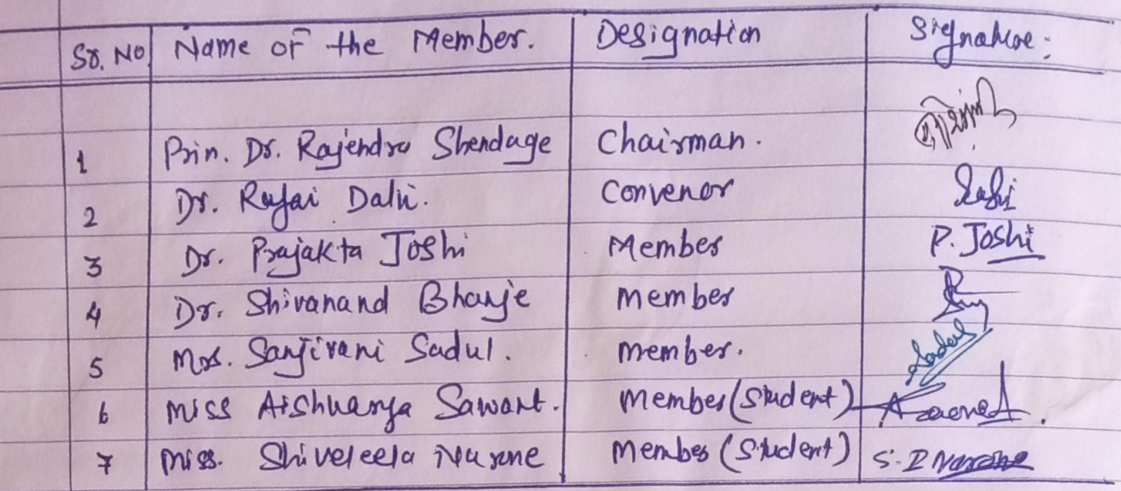 Sr. No Name of the Member. Designation Signature:
1 Prin. Dr. Rajendra Shendage Chairman.
2 Dr. Rajai Dalvi. Convenor
3 Dr. Prajakta Joshi Member P. Joshi
4 Dr. Shivanand Bhanje Member
5 Mrs. Sanjivani Sadul. member. Sadul
6 Miss Aishwarya Sawant. Member (Student)
7 Miss. Shiveleela Narone Member (Student) S. D Narone